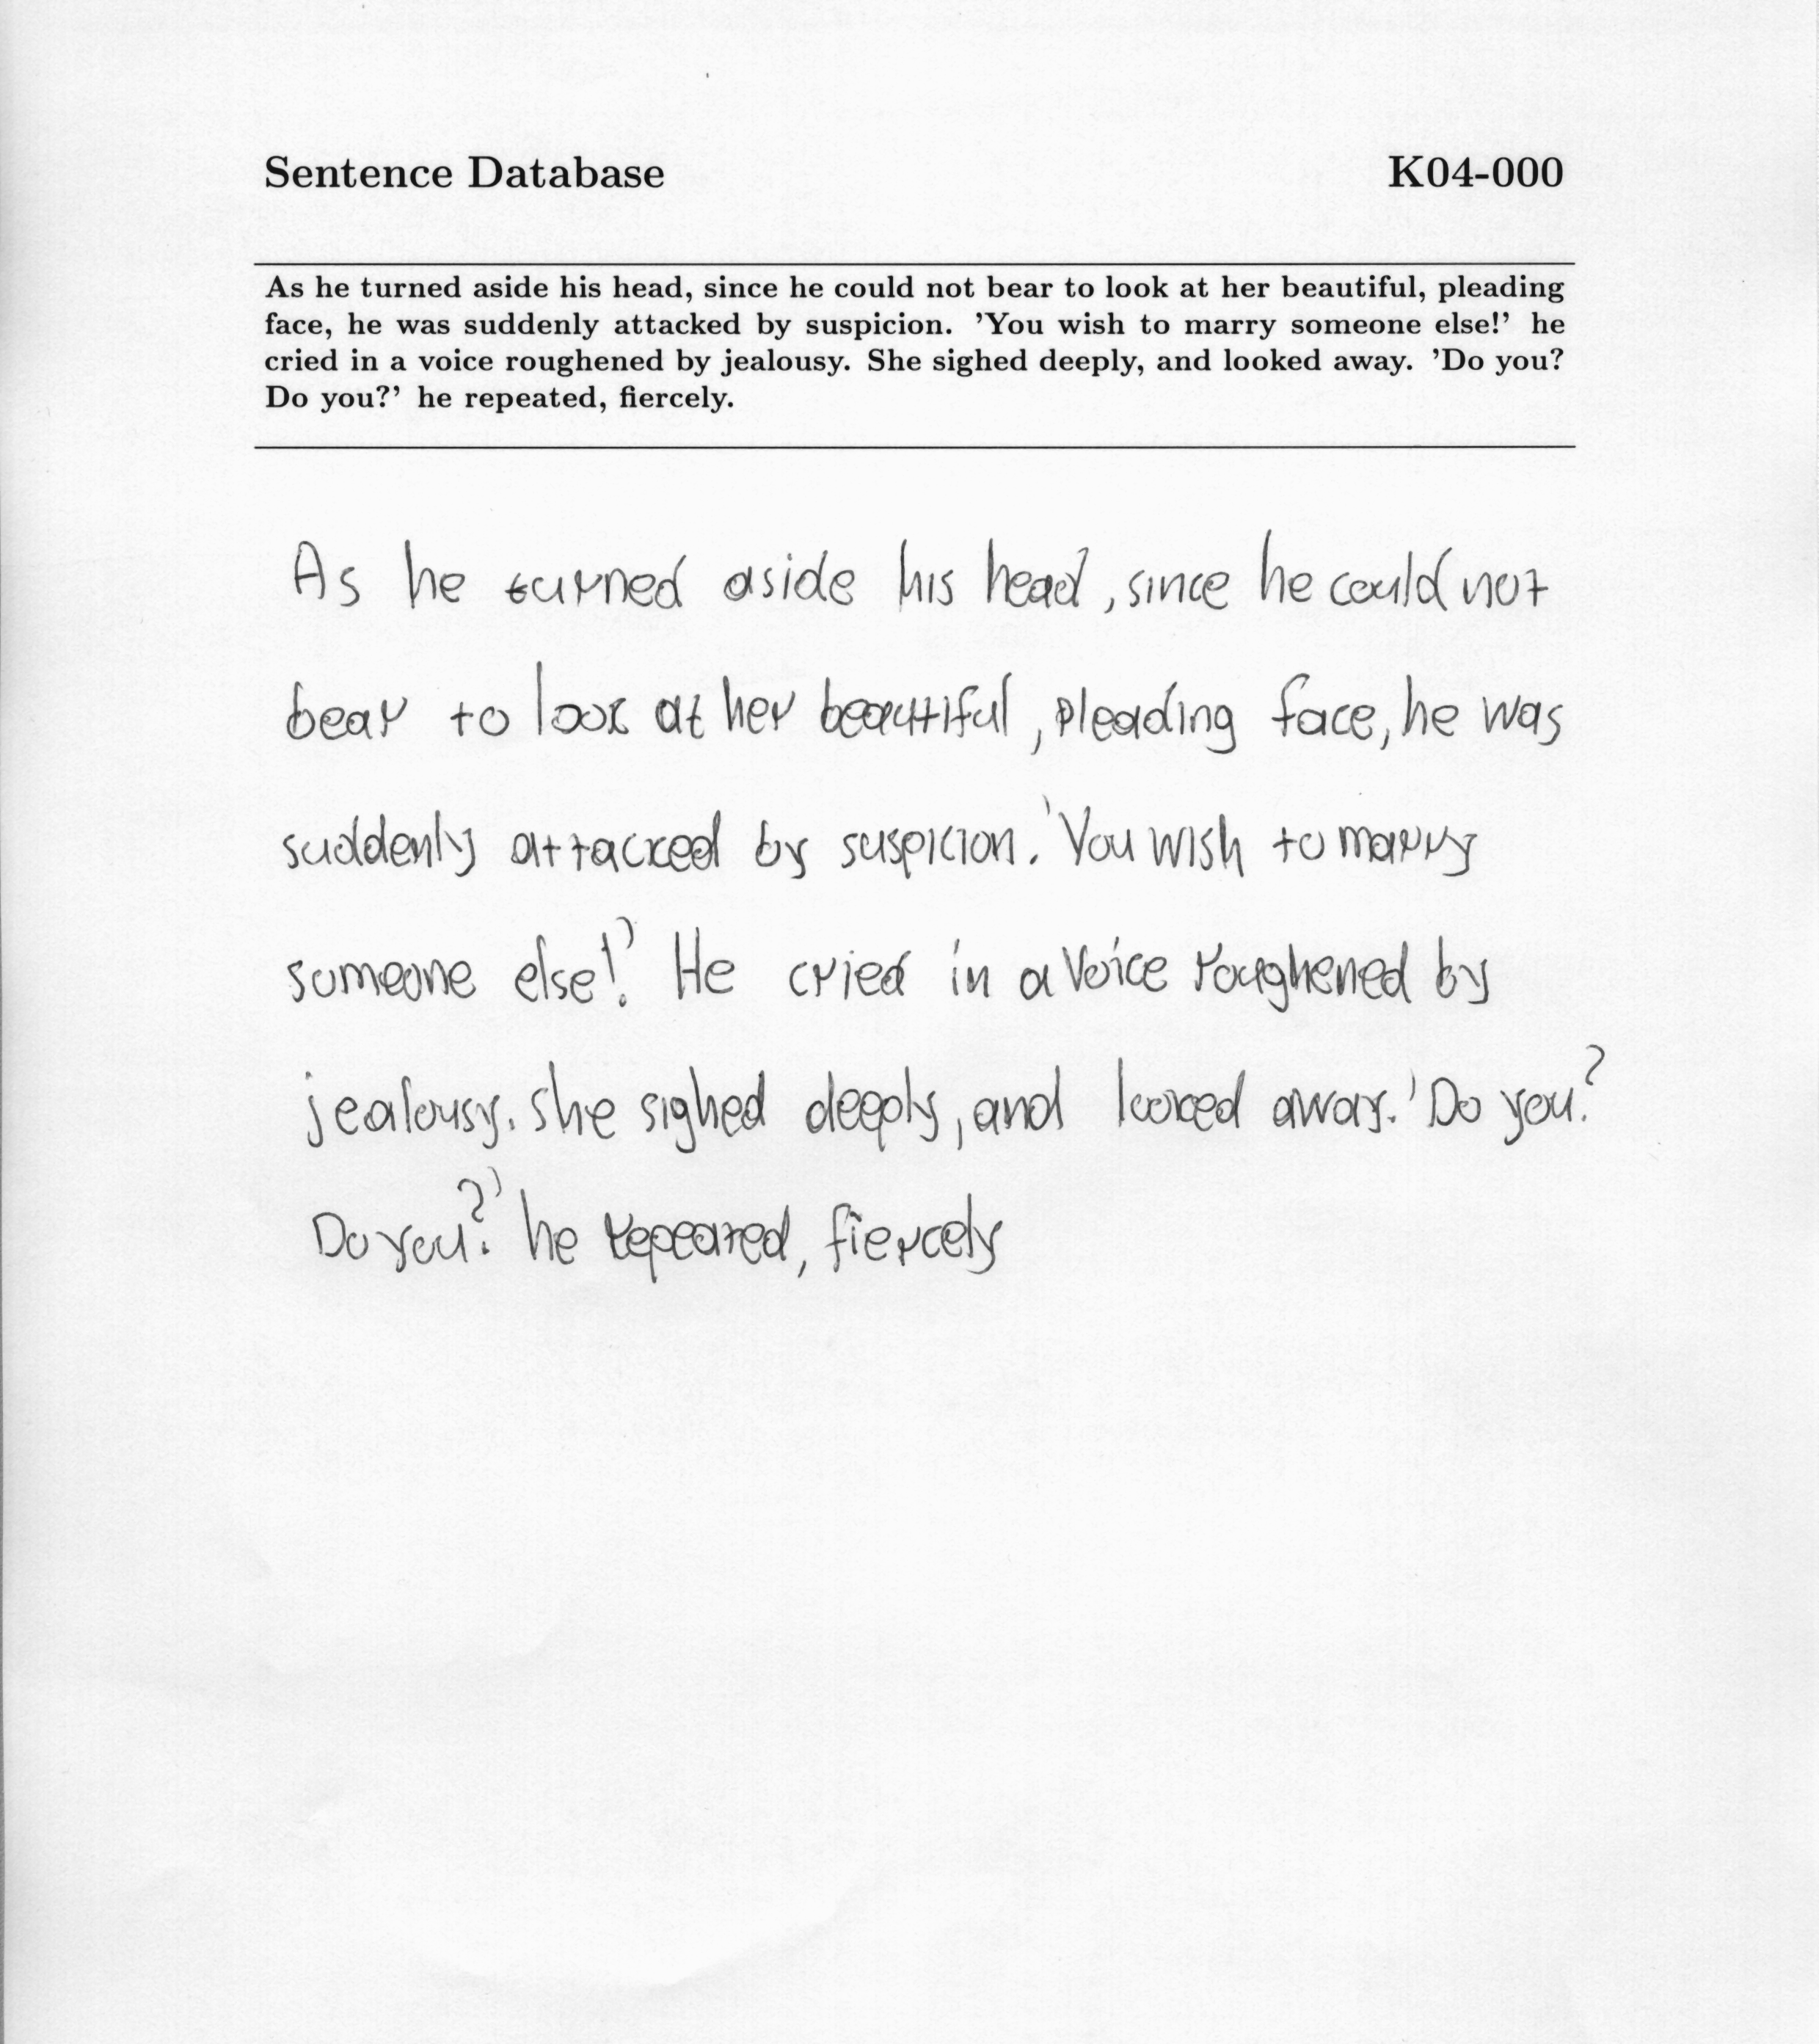 Sentence Database K04-000
As he turned aside his head, since he could not bear to look at her beautiful, pleading
face, he was suddenly attacked by suspicion. 'You wish to marry someone else!' he
cried in a voice roughened by jealousy. She sighed deeply, and looked away. 'Do you?
Do you?' he repeated, fiercely.
As he turned aside his head, since he could not
bear to look at her beautiful, pleading face, he was
suddenly attacked by suspicion. 'You wish to marry
someone else!' He cried in a voice roughened by
jealousy. she sighed deeply, and looked away. 'Do you?
Do you?' he repeated, fiercely